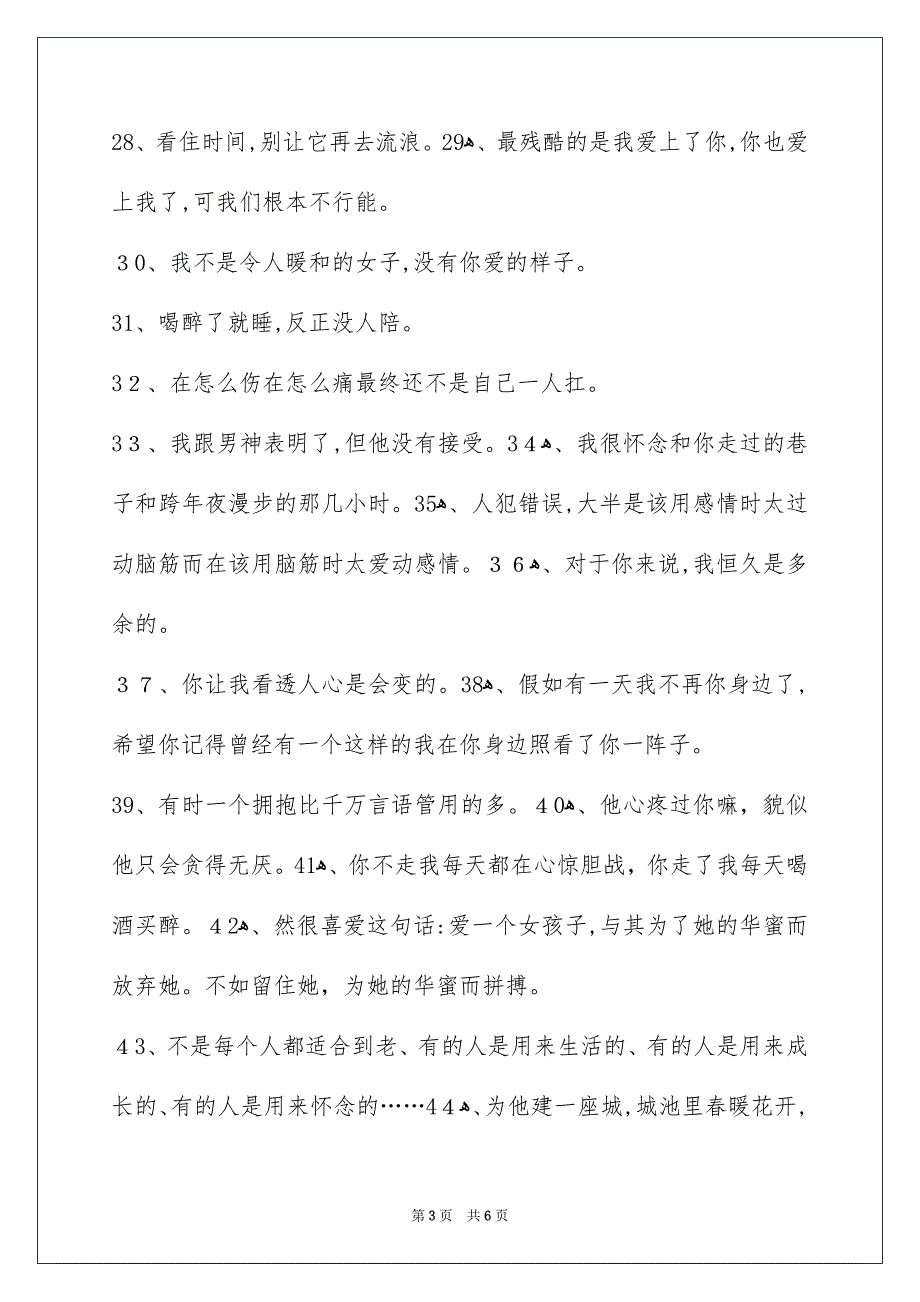 28、看住时间,别让它再去流浪。29ﻫ、最残酷的是我爱上了你,你也爱
上我了,可我们根本不行能。
３0、我不是令人暖和的女子,没有你爱的样子。
31、喝醉了就睡,反正没人陪。
3２、在怎么伤在怎么痛最终还不是自己一人扛。
3３、我跟男神表明了,但他没有接受。3４ﻫ、我很怀念和你走过的巷
子和跨年夜漫步的那几小时。35ﻫ、人犯错误,大半是该用感情时太过
动脑筋而在该用脑筋时太爱动感情。３６ﻫ、对于你来说,我恒久是多
余的。
３７、你让我看透人心是会变的。38ﻫ、假如有一天我不再你身边了,
希望你记得曾经有一个这样的我在你身边照看了你一阵子。
39、有时一个拥抱比千万言语管用的多。４0ﻫ、他心疼过你嘛，貌似
他只会贪得无厌。41ﻫ、你不走我每天都在心惊胆战，你走了我每天喝
酒买醉。４2ﻫ、然很喜爱这句话:爱一个女孩子,与其为了她的华蜜而
放弃她。不如留住她，为她的华蜜而拼搏。
４3、不是每个人都适合到老、有的人是用来生活的、有的人是用来成
长的、有的人是用来怀念的……4４ﻫ、为他建一座城,城池里春暖花开,
第 3 页 共 6 页